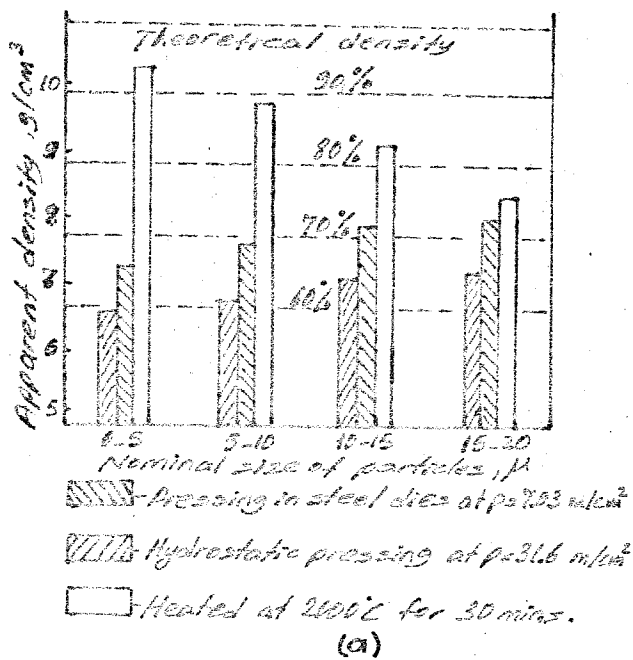 Theoretical density
90%
80%
70%
60%
Apparent density, g/cm³
10
9
8
7
6
5
0-5 5-10 10-15 15-20
Nominal size of particles, μ
-Pressing in steel dies at p=7.03 m/cm²
-Hydrostatic pressing at p=31.6 m/cm²
-Heated at 2000°C for 30 mins.
(a)